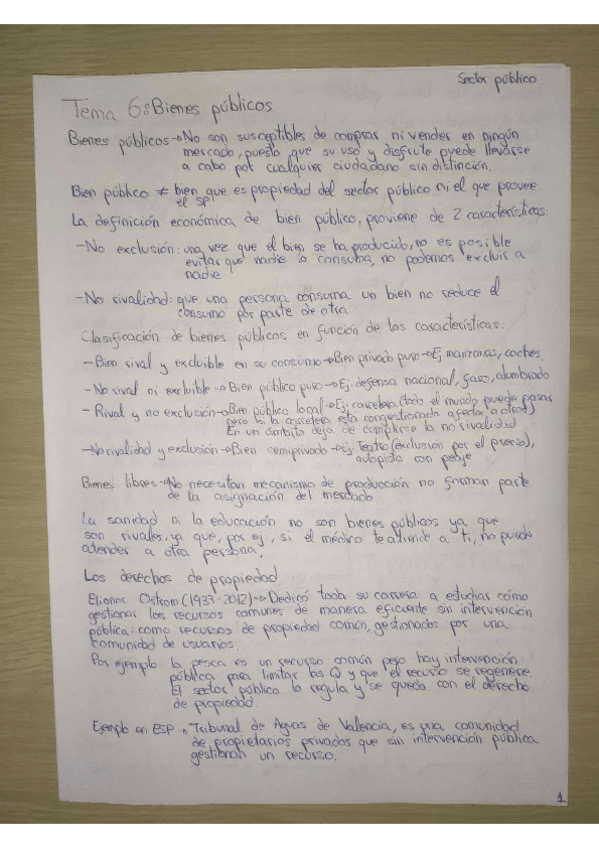 Sector público
Tema 6: Bienes públicos
Bienes públicos → No son susceptibles de comprar ni vender en ningún
mercado, puesto que su uso y disfrute puede llevarse
a cabo por cualquier ciudadano sin distinción.
Bien público ≠ bien que es propiedad del sector público ni el que provee
el SP.
La definición económica de bien público, proviene de 2 características:
- No exclusión: una vez que el bien se ha producido, no es posible
evitar que nadie lo consuma, no podemos excluir a
nadie
- No rivalidad: que una persona consuma un bien no reduce el
consumo por parte de otra
Clasificación de bienes públicos en función de las características:
- Bien rival y excluible en su consumo → Bien privado puro → Ej. manzanas, coches.
- No rival ni excluible → Bien público puro → Ej. defensa nacional, faro, alumbrado
- Rival y no exclusión → Bien público local → Ej. carretera (todo el mundo puede pasar
pero si la carretera está congestionada afecta a otros)
En un ámbito deja de cumplirse la no rivalidad
- No rivalidad y exclusión → Bien semiprivado → Ej. Teatro (exclusión por el precio),
autopista con peaje
Bienes libres → No necesitan mecanismo de producción no forman parte
de la asignación del mercado
La sanidad ni la educación no son bienes públicos ya que
son rivales, ya que, por ej, si el médico te atiende a ti, no puede
atender a otra persona.
Los derechos de propiedad
Elionor Ostrom (1933-2012) → Dedicó toda su carrera a estudiar cómo
gestionar los recursos comunes de manera eficiente sin intervención
pública: como recursos de propiedad común, gestionados por una
comunidad de usuarios.
Por ejemplo: la pesca es un recurso común pero hay intervención
pública para limitar las Q y que el recurso se regenere.
El sector público lo regula y se queda con el derecho
de propiedad.
Ejemplo en ESP → Tribunal de Aguas de Valencia, es una comunidad
de propietarios privados que sin intervención pública
gestionan un recurso.
1